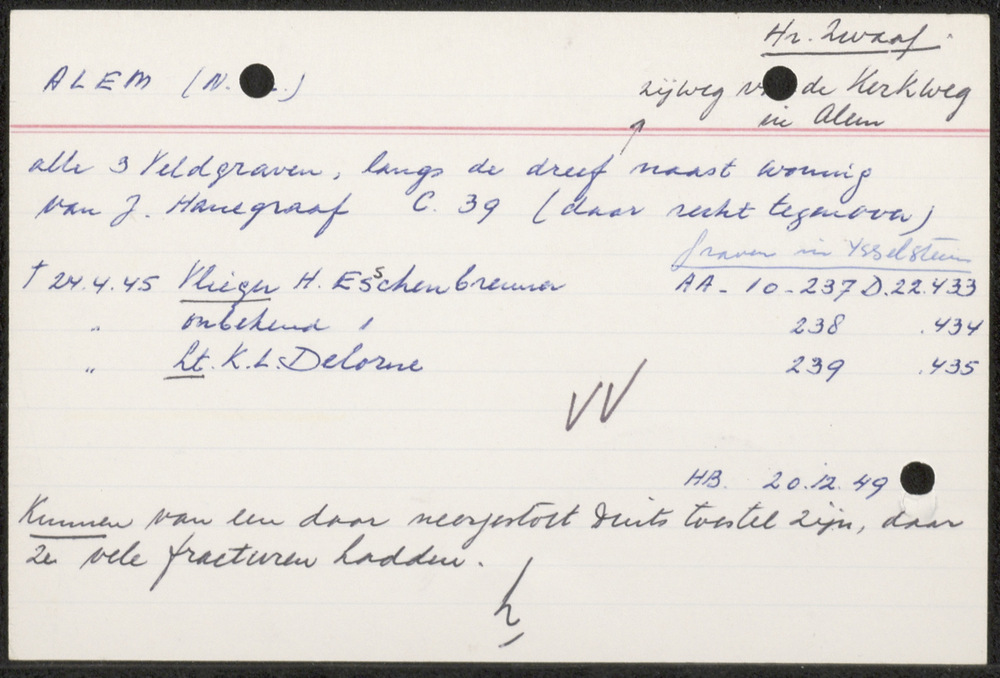 Hr. Zwaaf.
ALEM (N. .)
zijweg v de Kerkweg
in Alem
alle 3 Veldgraven, langs de dreef naast woning
van J. Hanegraaf C. 39 (daar recht tegenover)
graven in Ysselstein
† 24.4.45 Vlieger H. Esschenbrenner AA - 10 - 237 D.22.433
" onbekend 1 238 .434
" Lt. K.L. Delorme 239 .435
VV
HB. 20.12.49
Kunnen van een daar neergestort Duits toestel zijn, daar
ze vele fracturen hadden.